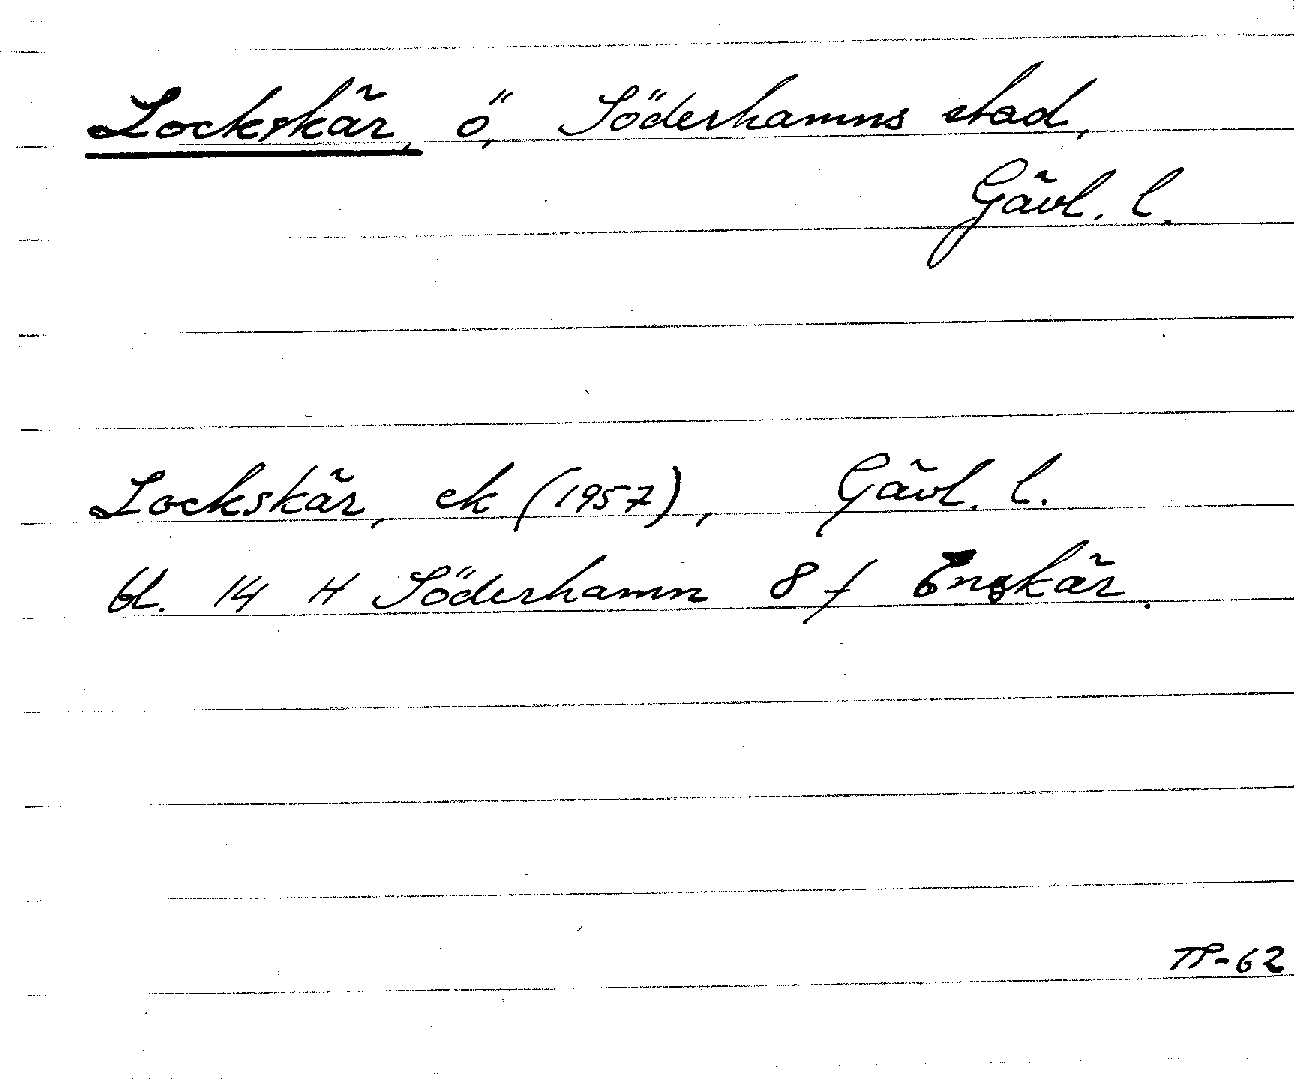 Lockskär, ö, Söderhamns stad,
Gävl. l.
Lockskär, ek (1957), Gävl. l.
bl. 14 H Söderhamn 8 f Enskär.
TP-62